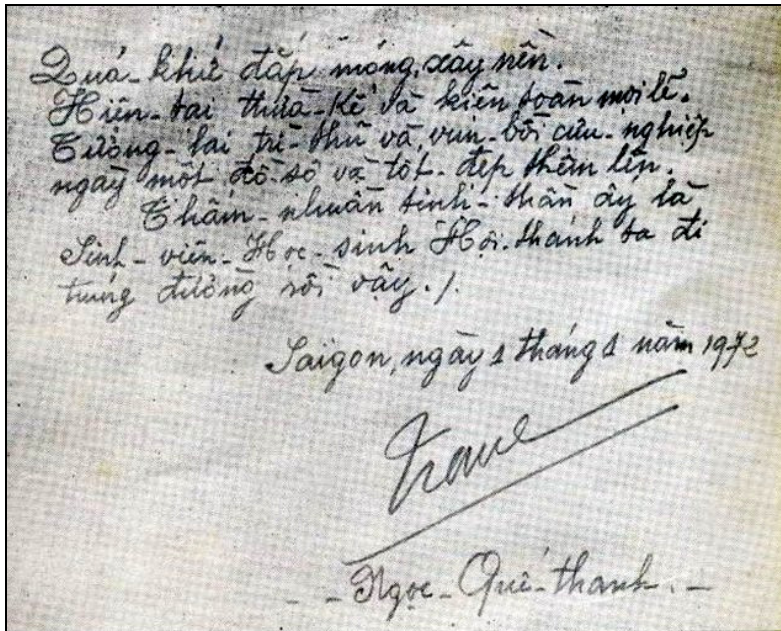 Quá-khứ đắp móng, xây nền.
Hiện-tại thừa-kế và kiên toàn mọi lẽ.
Tương-lai trì-thủ và vun-bồi cựu-nghiệp
ngày một đồ-sộ và tốt-đẹp thêm lên.
Thấm-nhuần tinh-thần ấy là
Sinh-viên-Học-sinh Hội-thánh ta đi
trúng đường rồi vậy./.
Saigon, ngày 1 tháng 1 năm 1972
-- Ngọc-Quế-thanh.-